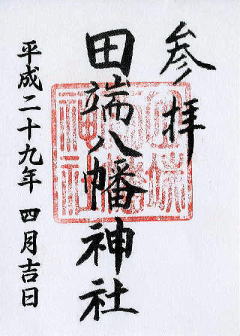 参拝
田端八幡神社
平成二十九年 四月吉日